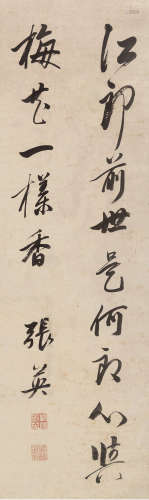 江郎前世是何郎心與
梅花一樣香　張英